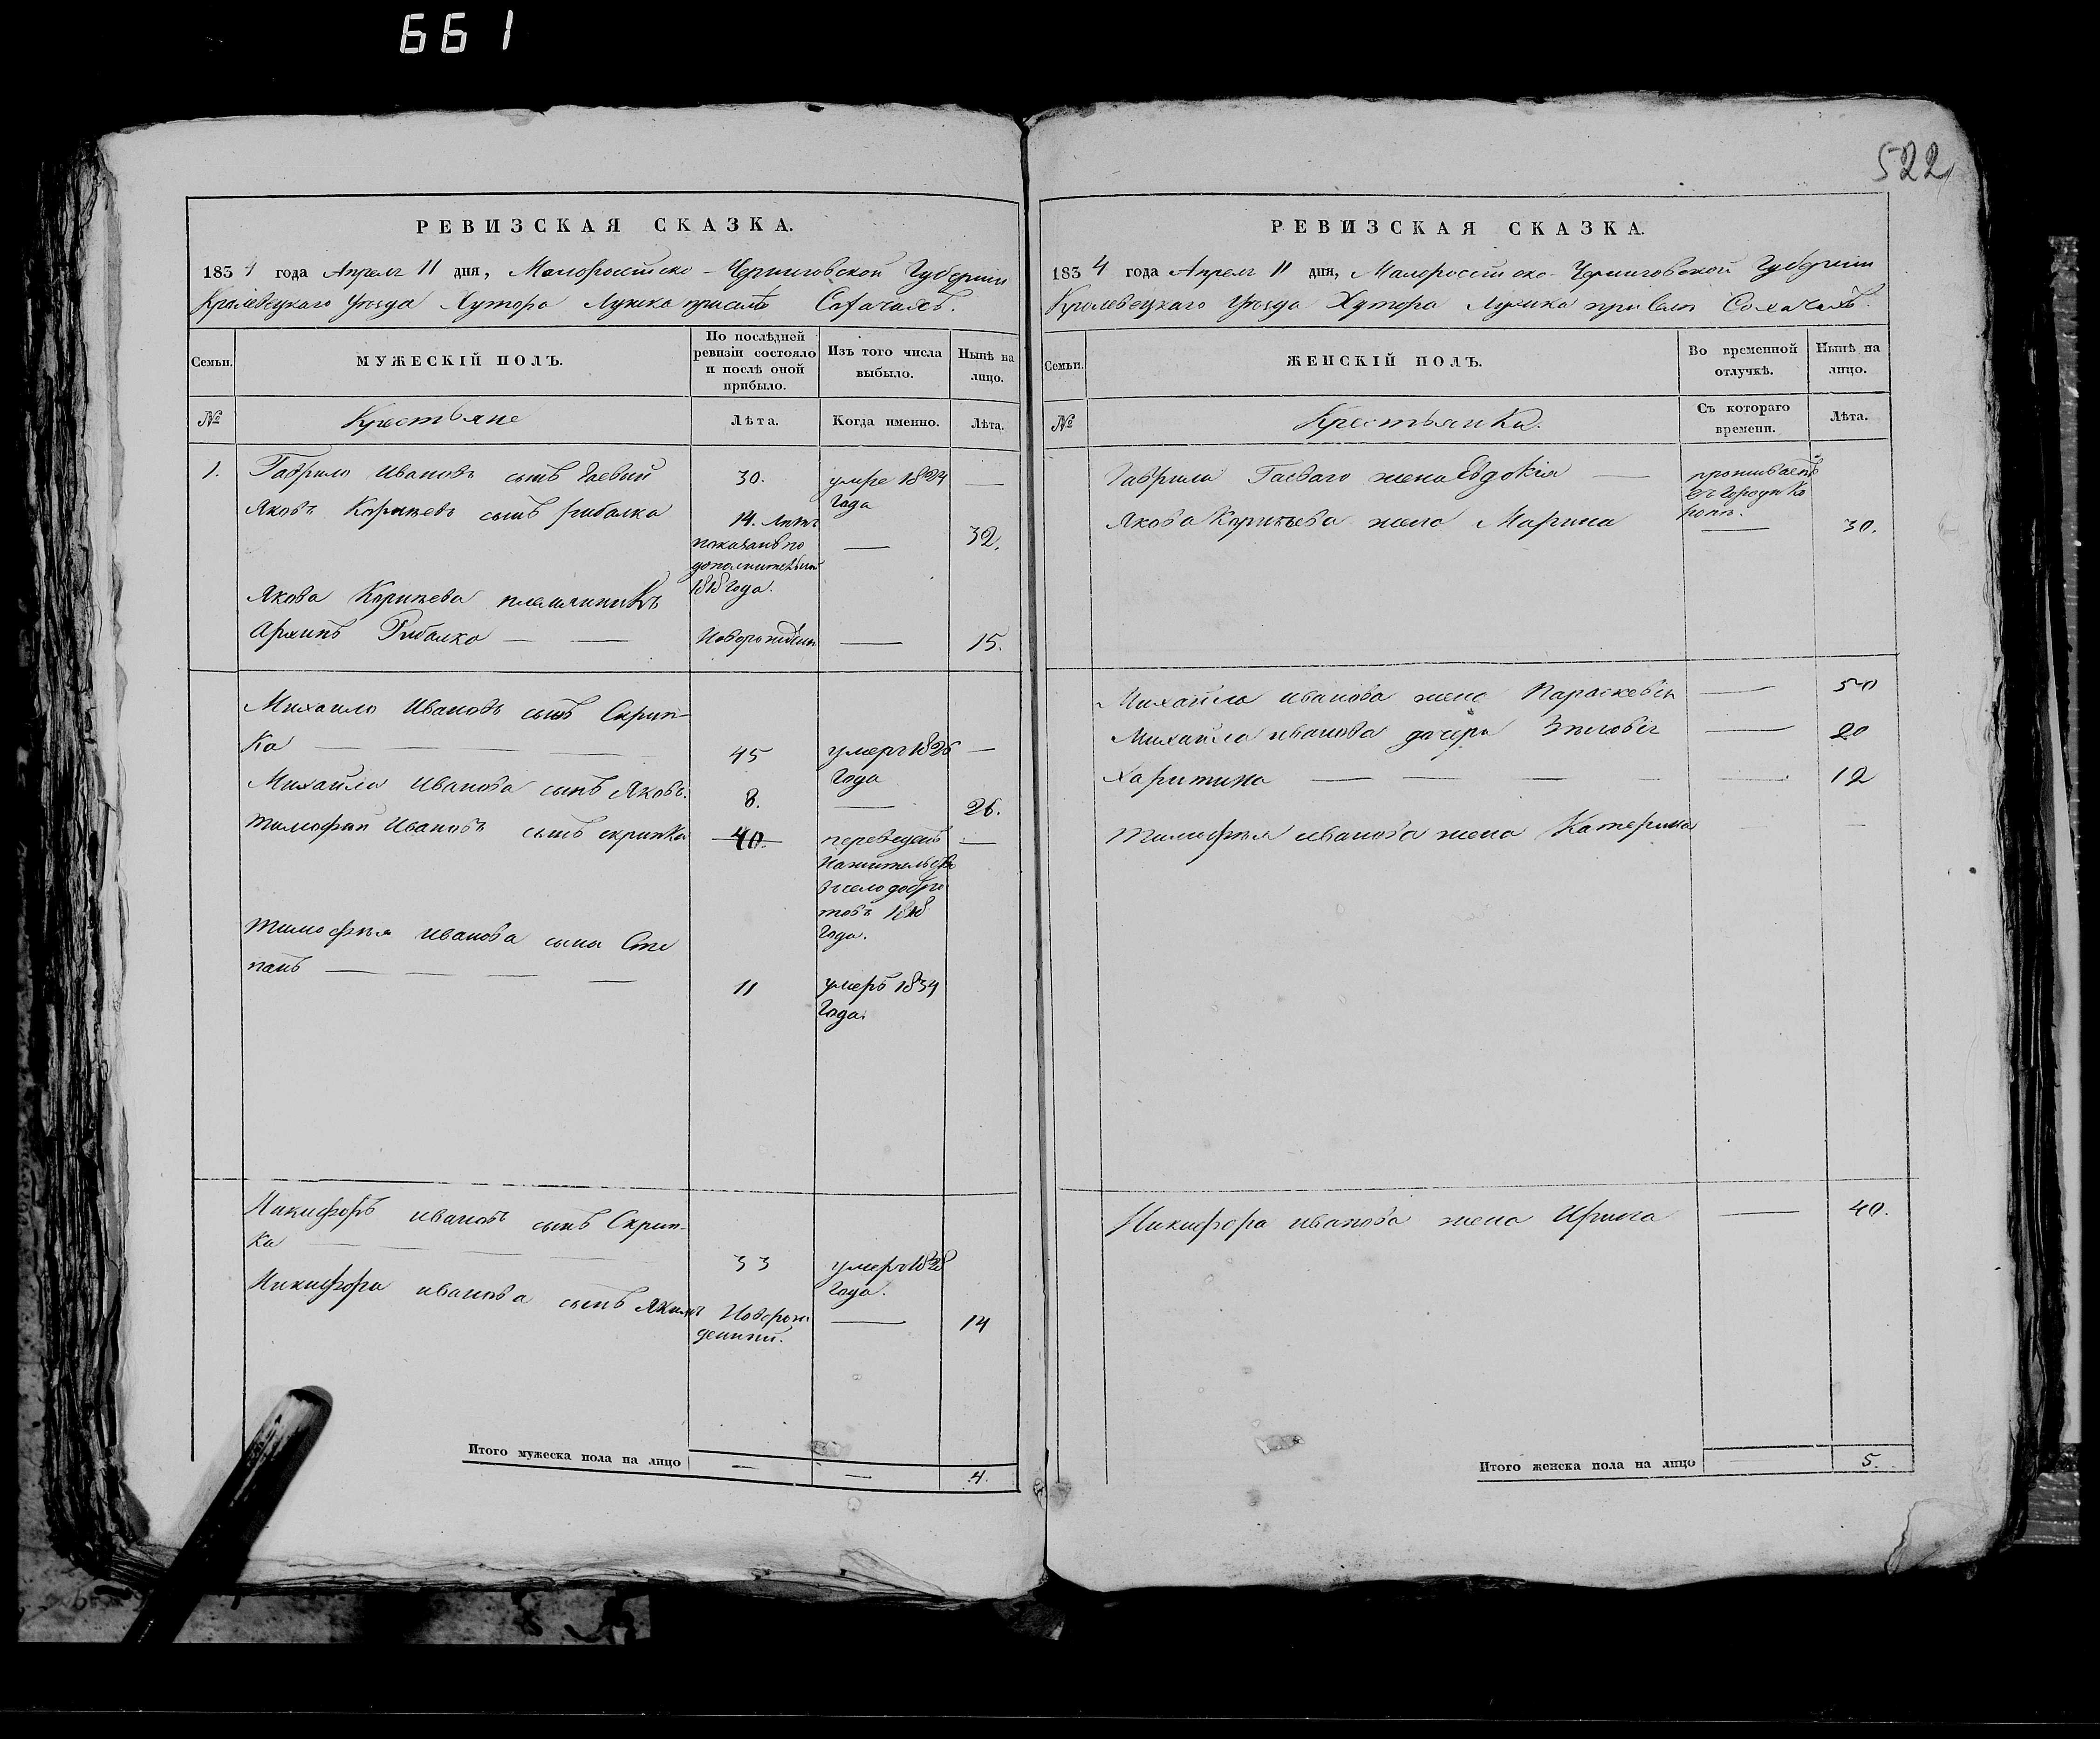 661
522
РЕВИЗСКАЯ СКАЗКА.
1834 года Апреля 11 дня, Малороссийско-Черниговской Губернии
Кролевецкаго уѣзда Хутора Лужка при селѣ Сохачахъ.
Семьи.
МУЖЕСКІЙ ПОЛЪ.
По послѣдней ревизіи состояло и послѣ оной прибыло.
Изъ того числа выбыло.
Нынѣ на лицо.
№
Крестьяне
Лѣта.
Когда именно.
Лѣта.
1. Гаврило Ивановъ сынъ Гаевый 30. умре 1824 —
Года
Яковъ Карпѣевъ сынъ рибалка 14. лѣтъ — 32.
показанъ по
дополнительной
1818 Года.
Якова Карпѣева племянникъ
Архипъ Рибалко — — Новорожденъ — 15.
Михаило Ивановъ сынъ Скрип-
ка — — — 45 умеръ 1826 —
Года
Михайла Иванова сынъ Яковъ. 8. — 26.
Тимофѣй Ивановъ сынъ скрипка 40. переведенъ —
на жительство
в село
1818
Года.
Тимофѣя Иванова сынъ Сте
панъ — — — — 11 умеръ 1834
Года.
Никифоръ ивановъ сынъ Скрип-
ка — — — — 33 умеръ 1828
Года.
Никифора иванова сынъ Якимъ Новорож
денный. — 14
Итого мужеска пола на лицо — — 4.
РЕВИЗСКАЯ СКАЗКА.
1834 года Апреля 11 дня, Малороссийско-Черниговской Губернии
Кролевецкаго Уѣзда Хутора Лужка при селѣ Сохачахъ.
Семьи.
ЖЕНСКІЙ ПОЛЪ.
Во временной отлучкѣ.
Нынѣ на лицо.
№
Крестьянки.
Съ котораго времени.
Лѣта.
Гаврила Гаеваго жена Евдокия — проживаетъ
въ Городѣ Ко
ропѣ.
Якова Карпѣева жена Марина — 30.
Михайла иванова жена Параскевия — 50
Михайла иванова дочери — 20
Харитина — — — — — 12
Тимофѣя иванова жена Катерина — —
Никифора иванова жена Ирина — 40.
Итого женска пола на лицо — 5.